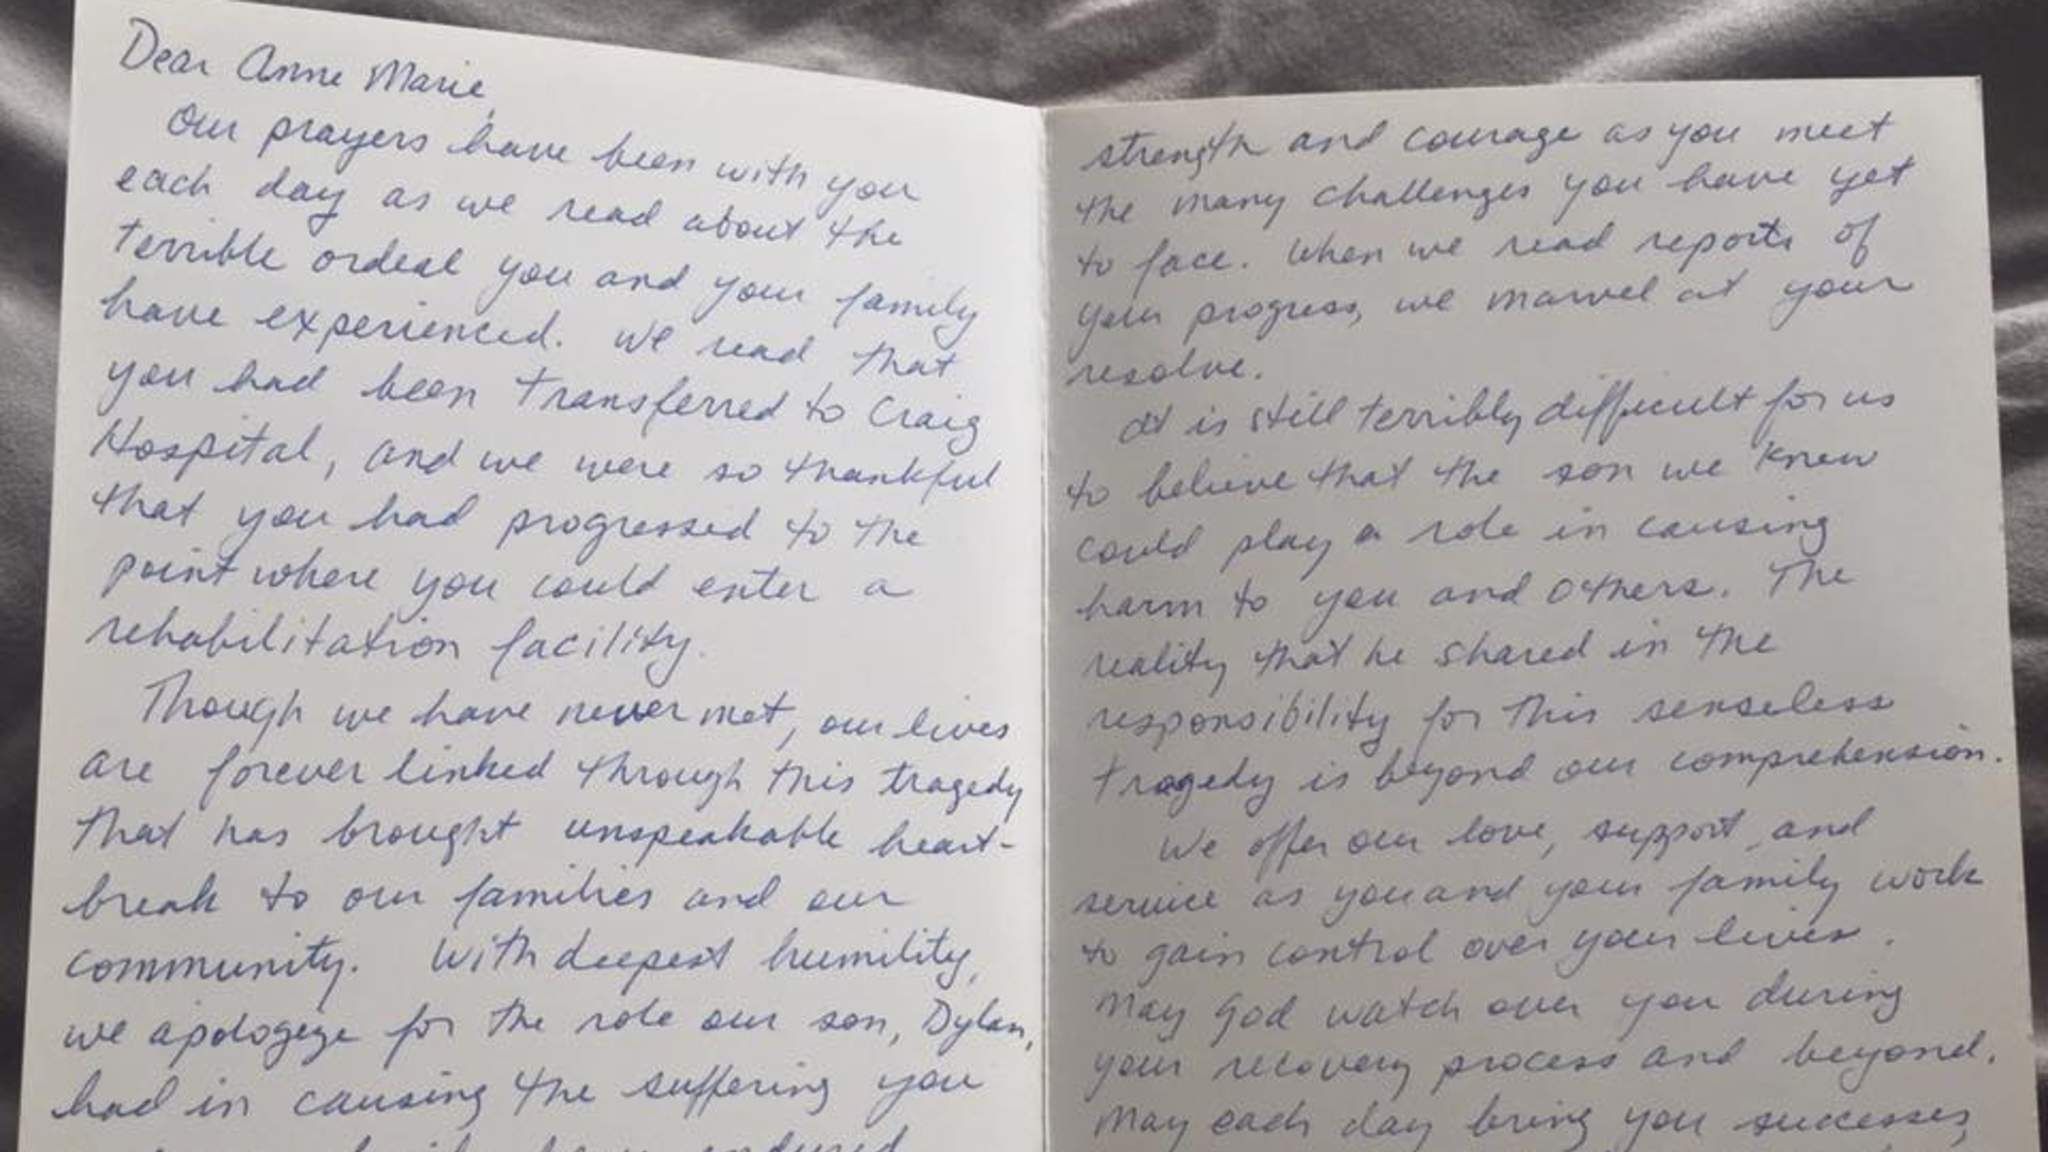 Dear Anne Marie,
Our prayers have been with you
each day as we read about the
terrible ordeal you and your family
have experienced. We read that
you had been transferred to Craig
Hospital, and we were so thankful
that you had progressed to the
point where you could enter a
rehabilitation facility.
Though we have never met, our lives
are forever linked through this tragedy
that has brought unspeakable heart-
break to our families and our
community. With deepest humility,
we apologize for the role our son, Dylan,
had in causing the suffering you
have endured
strength and courage as you meet
the many challenges you have yet
to face. When we read reports of
your progress, we marvel at your
resolve.
It is still terribly difficult for us
to believe that the son we knew
could play a role in causing
harm to you and others. The
reality that he shared in the
responsibility for this senseless
tragedy is beyond our comprehension.
We offer our love, support, and
service as you and your family work
to gain control over your lives.
May God watch over you during
your recovery process and beyond.
May each day bring you successes,